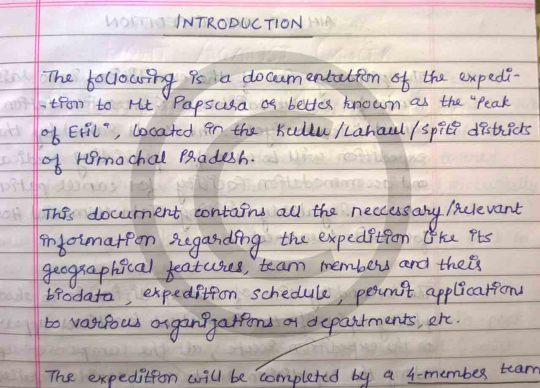 INTRODUCTION
The following is a documentation of the expedi-
-tion to Mt. Papsura or better known as the "Peak
of Evil", located in the Kullu/Lahaul/Spiti districts
of Himachal Pradesh.
This document contains all the neccessary/relevant
information regarding the expedition like its
geographical features, team members and their
biodata, expedition schedule, permit applications
to various organizations or departments, etc.
The expedition will be completed by a 4-member team